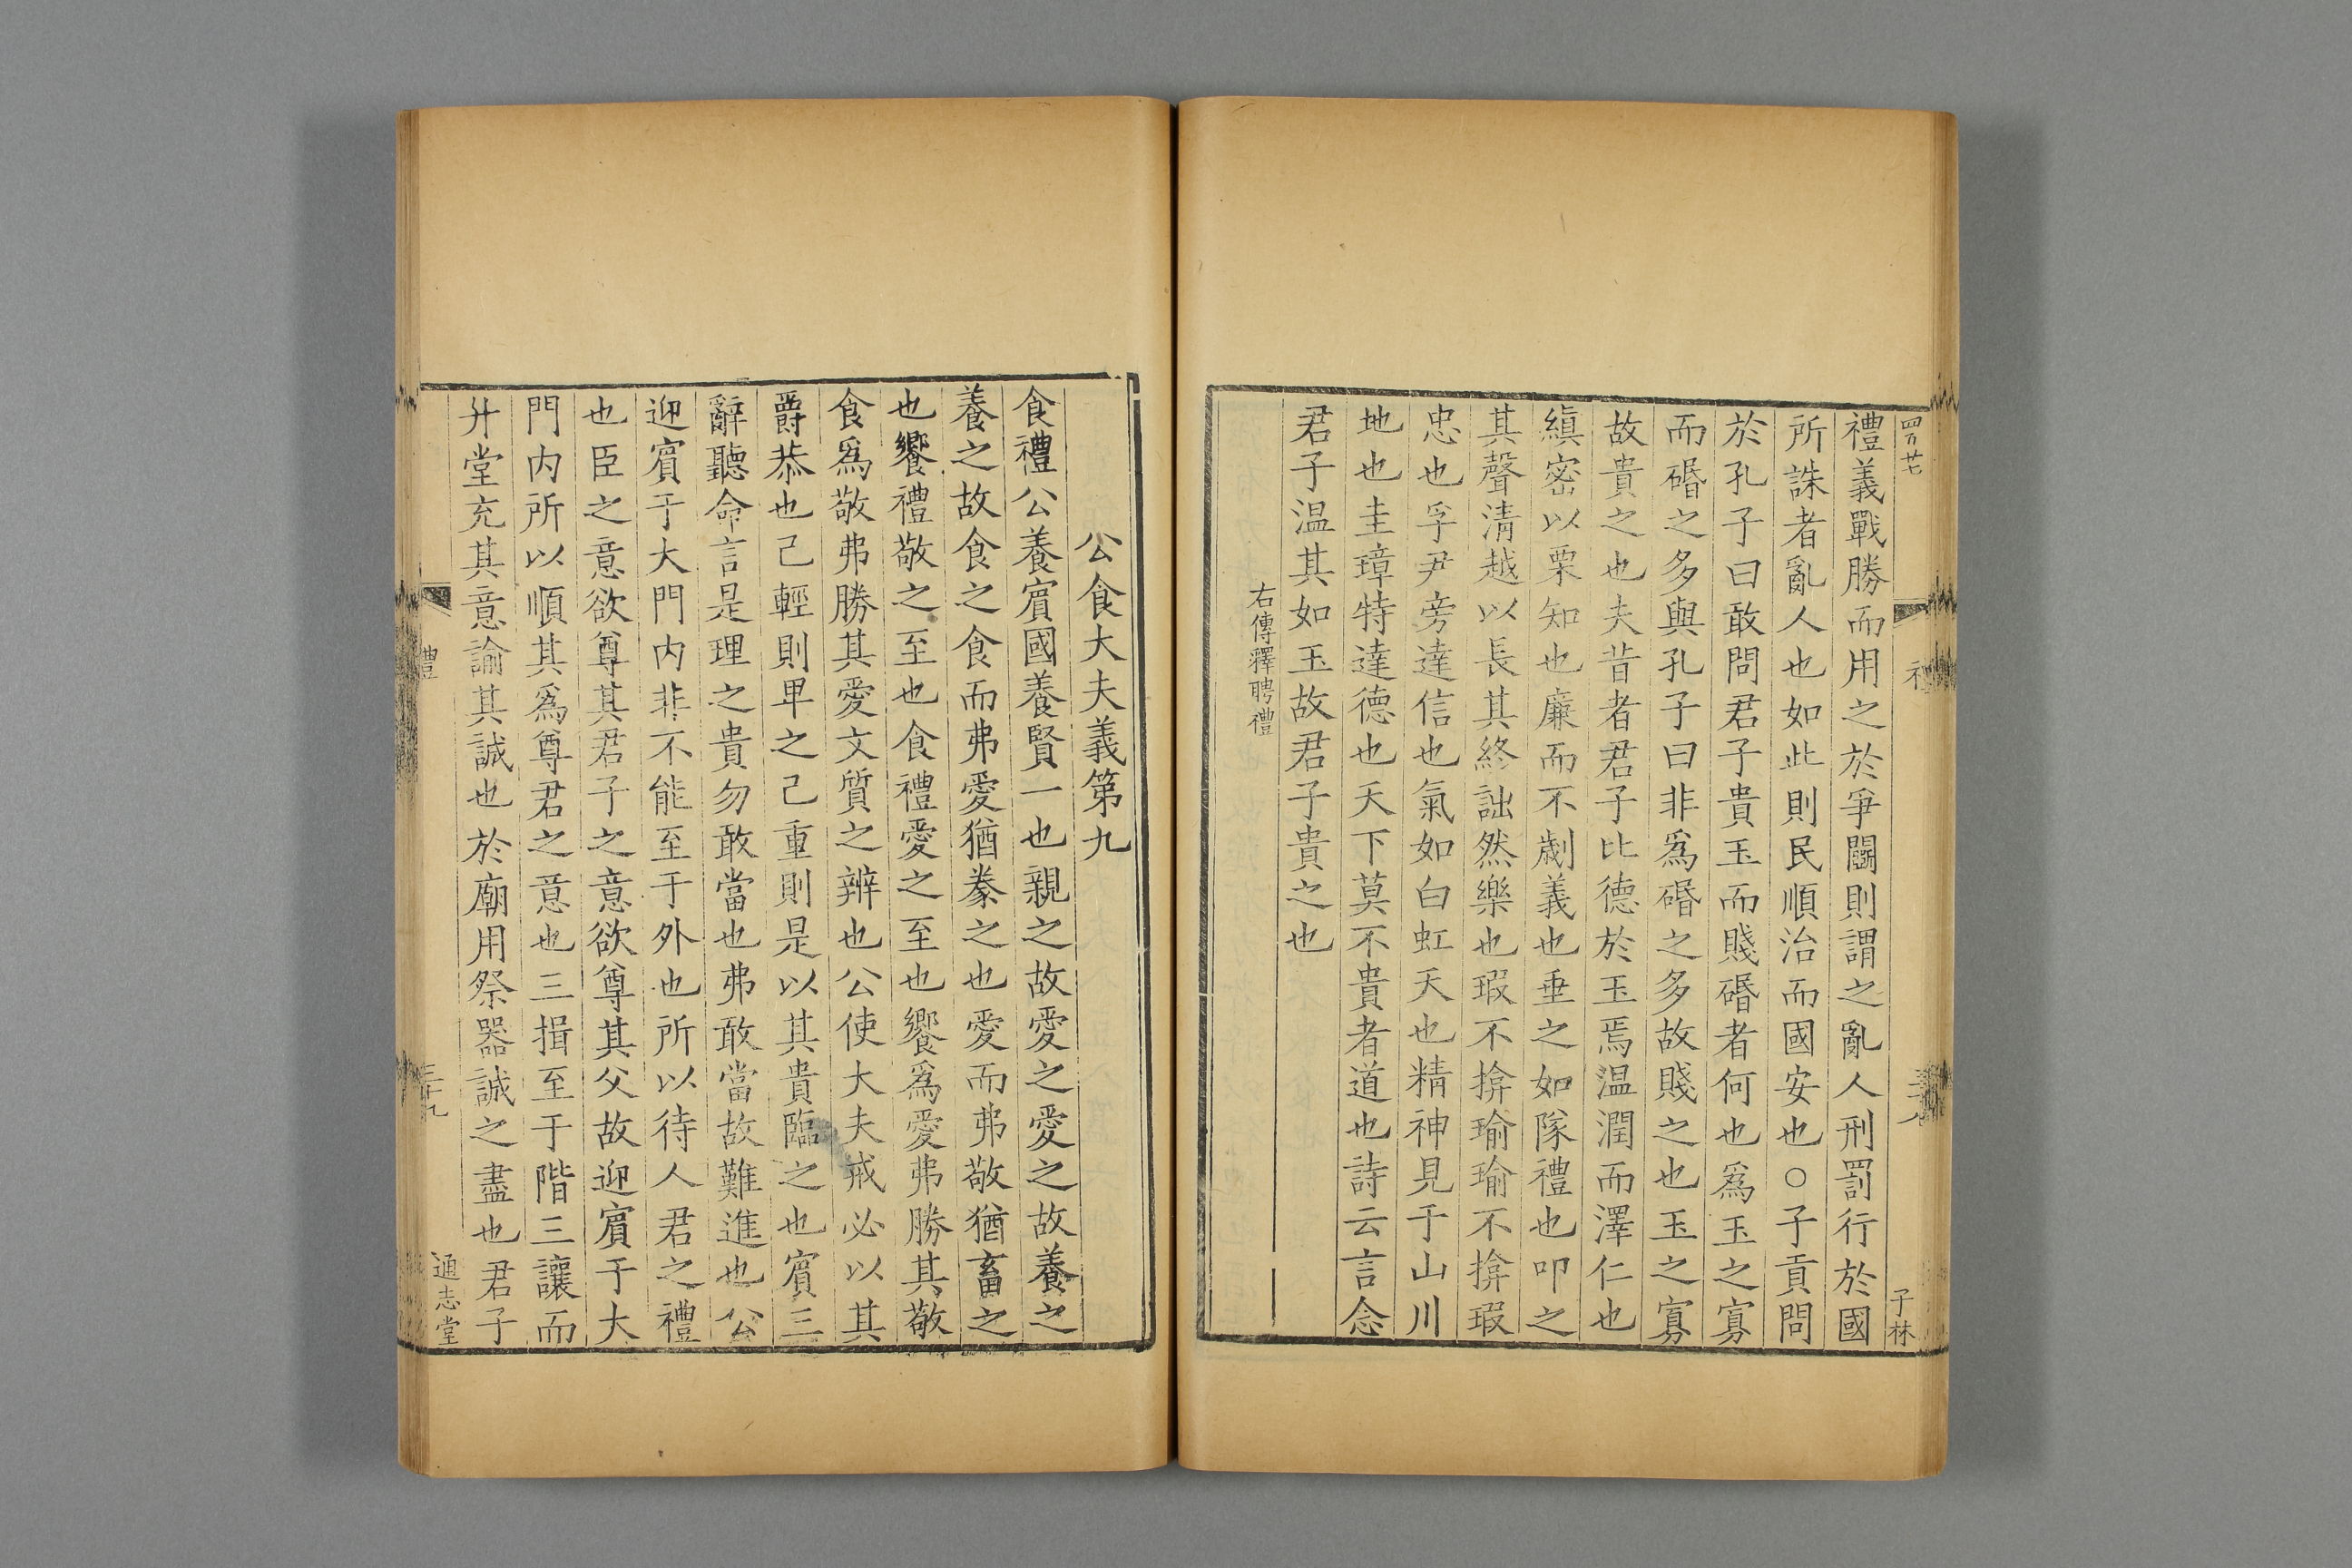 四百廿七
子林
禮義戰勝而用之於爭鬬則謂之亂人刑罰行於國
所誅者亂人也如此則民順治而國安也○子貢問
於孔子曰敢問君子貴玉而賤碈者何也爲玉之寡
而碈之多與孔子曰非爲碈之多故賤之也玉之寡
故貴之也夫昔者君子比德於玉焉温潤而澤仁也
縝密以栗知也廉而不劌義也垂之如隊禮也叩之
其聲清越以長其終詘然樂也瑕不揜瑜瑜不揜瑕
忠也孚尹旁達信也氣如白虹天也精神見于山川
地也圭璋特達德也天下莫不貴者道也詩云言念
君子温其如玉故君子貴之也
右傳釋聘禮
公食大夫義第九
食禮公養賓國養賢一也親之故愛之愛之故養之
養之故食之食而弗愛猶豢之也愛而弗敬猶畜之
也饗禮敬之至也食禮愛之至也饗爲愛弗勝其敬
食爲敬弗勝其愛文質之辨也公使大夫戒必以其
爵恭也己輕則卑之己重則是以其貴臨之也賓三
辭聽命言是理之貴勿敢當也弗敢當故難進也公
迎賓于大門内非不能至于外也所以待人君之禮
也臣之意欲尊其君子之意欲尊其父故迎賓于大
門内所以順其爲尊君之意也三揖至于階三讓而
升堂充其意諭其誠也於廟用祭器誠之盡也君子
禮
三十九
通志堂